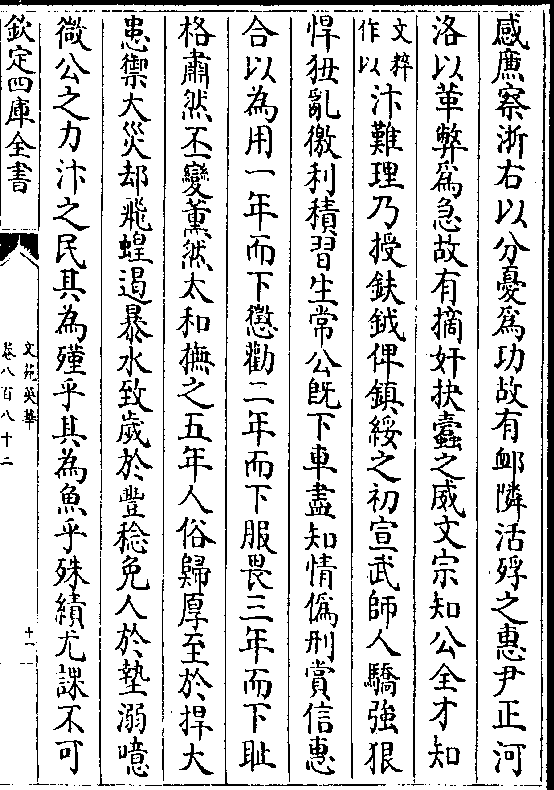 感廉察浙右以分憂為功故有䘏隣活殍之惠尹正河
洛以革弊為急故有摘奸抉蠹之威文宗知公全才知
文粹作以汴難理乃授鈇鉞俾鎮綏之初宣武師人驕強狠
悍狃亂徼利積習生常公既下車盡知情偽刑賞信惠
合以為用一年而下懲勸二年而下服畏三年而下耻
格肅然丕變薫然太和撫之五年人俗歸厚至於捍大
患禦大災却飛蝗遏暴水致歲於豐稔免人於墊溺噫
微公之力汴之民其為殣乎其為魚乎殊績尤課不可
欽定四庫全書
文苑英華
卷八百八十二
十一